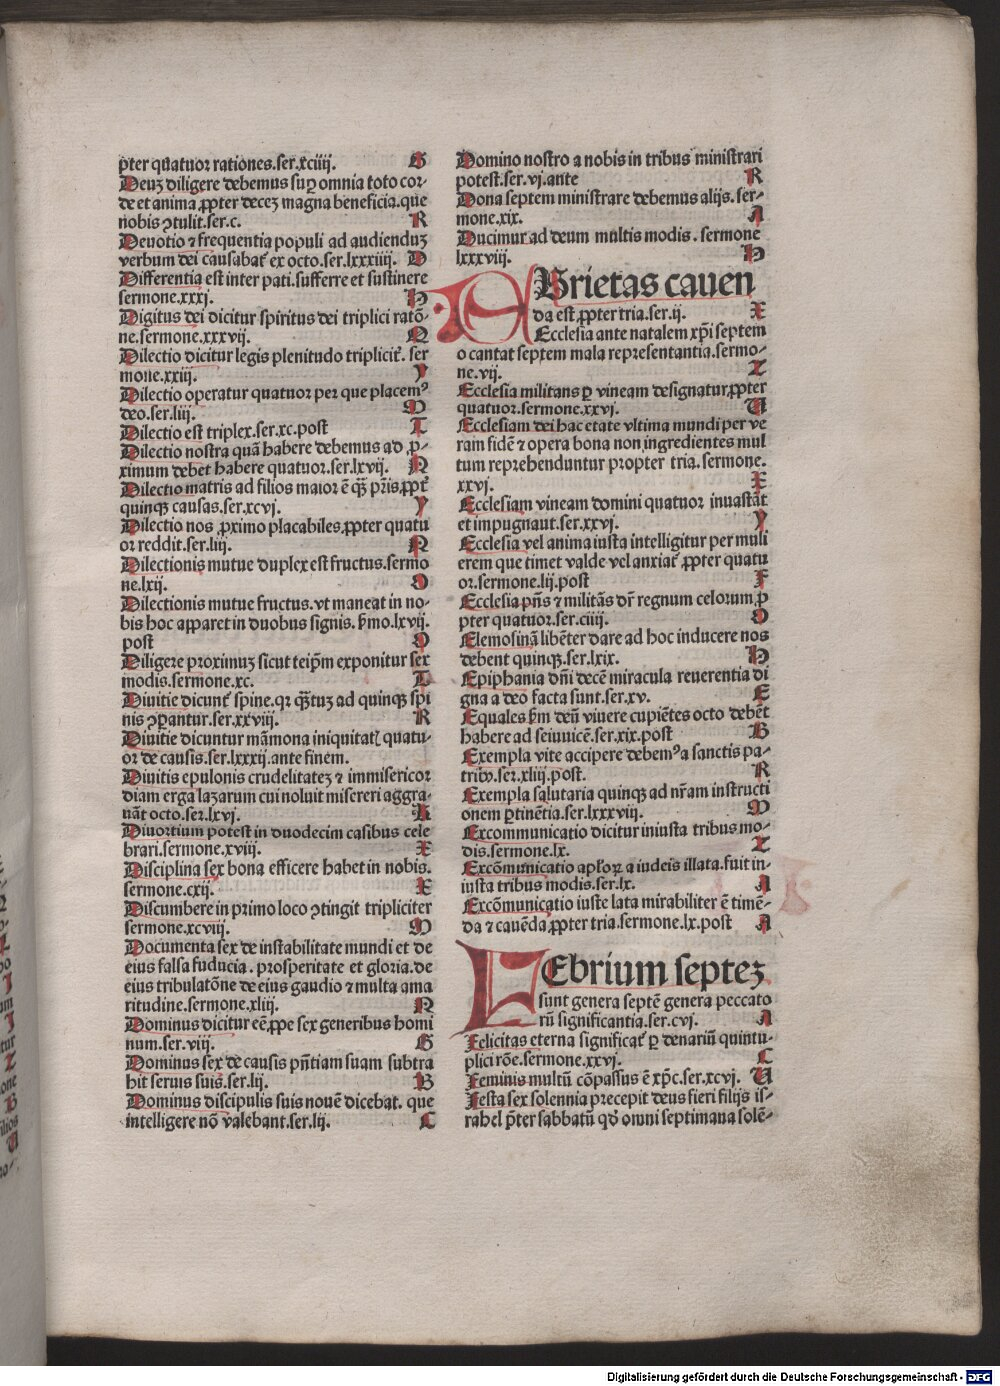 pter quatuor rationes.ser.xciiij. G
Deuꝫ diligere debemus sup̱ omnia toto cor⸗
de et anima ꝓpter deceꝫ magna beneficia.que
nobis ꝯtulit.ser.c. R
Deuotio ⁊ frequentia populi ad audienduꝫ
verbum dei causabat᷑ ex octo.ser.lxxxiiij. D
Differentia est inter pati.sufferre et sustinere
sermone.xxxj. H
Digitus dei dicitur spiritus dei triplici ratō⸗
ne.sermone.xxxvij. Q
Dilectio dicitur legis plenitudo triplicit᷑. ser
mone.xxiij. Y
Dilectio operatur quatuor per que placemꝰ
deo.ser.liij. M
Dilectio est triplex.ser.xc.post T
Dilectio nostra quā habere debemus ad ꝓ⸗
ximum debet habere quatuor.ser.lxvij. N
Dilectio matris ad filios maior ē qꝫ̄ pr̄is.ꝓpt᷑
quinqꝫ causas.ser.xcvj. Y
Dilectio nos ꝓximo placabiles ꝓpter quatu
or reddit.ser.liij. N
Dilectionis mutue duplex est fructus.sermo
ne.lxij. O
Dilectionis mutue fructus.vt maneat in no⸗
bis hoc apparet in duobus signis. s̄mo.lxvij.
post O
Diligere proximuꝫ sicut teip̄m exponitur sex
modis.sermone.xc. T
Diuitie dicunt᷑ spine.qꝛ qꝫ̄tuꝫ ad quinqꝫ spi
nis ꝯꝑantur.ser.xxviij. R
Diuitie dicuntur māmona iniquitatꝭ quatu⸗
or de causis.ser.lxxxij.ante finem.
Diuitis epulonis crudelitateꝫ ⁊ immisericor
diam erga lazarum cui noluit misereri aggra⸗
uāt octo.ser.lxvj. K
Diuortium potest in duodecim casibus cele
brari.sermone.xviij. X
Disciplina sex bona efficere habet in nobis.
sermone.cxij. X
Discumbere in primo loco ꝯtingit tripliciter
sermone.xcviij. M
Documenta sex de instabilitate mundi et de
eius falsa fuducia. prosperitate et gloria.de
eius tribulatōne de eius gaudio ⁊ multa ama
ritudine.sermone.xliij. N
Dominus dicitur eē ꝓpe sex generibus homi
num.ser.viij. G
Dominus sex de causis pn̄tiam suam subtra
hit seruis suis.ser.lij. B
Dominus discipulis suis nouē dicebat. que
intelligere nō valebant.ser.lij. C
Domino nostro a nobis in tribus ministrari
potest.ser.vj.ante R
Dona septem ministrare debemus alijs. ser⸗
mone.xix. A
Ducimur ad deum multis modis. sermone
lxxxviij. H
EBrietas cauen
da est ꝓpter tria.ser.ij. X
Ecclesia ante natalem xp̄i septem
o cantat septem mala representantia.sermo⸗
ne.vij. T
Ecclesia militans ꝑ vineam designatur ꝓpter
quatuor.sermone.xxvj. U
Ecclesiam dei hac etate vltima mundi per ve
ram fidē ⁊ opera bona non ingredientes mul
tum reprehenduntur propter tria. sermone.
xxvj. X
Ecclesiam vineam domini quatuor inuastāt
et impugnaut.ser.xxvj. Y
Ecclesia vel anima iusta intelligitur per muli
erem que timet valde vel anxiat᷑ ꝓpter quatu
or.sermone.lij.post F
Ecclesia pn̄s ⁊ militās dr̄ regnum celorum ꝓ
pter quatuor.ser.ciiij. O
Elemosinā libēter dare ad hoc inducere nos
debent quinqꝫ.ser.lxix. H
Epiphania dn̄i decē miracula reuerentia di
gna a deo facta sunt.ser.xv. E
Equales s̄m deū viuere cupiētes octo debēt
habere ad seiuuicē.ser.xix.post B
Exempla vite accipere debemꝰ a sanctis pa⸗
tribꝰ.ser.xliij.post. R
Exempla salutaria quinqꝫ ad nr̄am instructi
onem ꝑtinētia.ser.lxxxviij. M
Excommunicatio dicitur iniusta tribus mo⸗
dis.sermone.lx. Z
Excōmunicatio apl̄oꝝ a iudeis illata.fuit in⸗
iusta tribus modis.ser.lx. A
Excōmunicatio iuste lata mirabiliter ē timē⸗
da ⁊ cauēda ꝓpter tria.sermone.lx.post A
FEbrium septeꝫ
sunt genera septē genera peccato
rū significantia.ser.cvj. A
Felicitas eterna significat᷑ ꝑ denariū quintu⸗
plici rōe.sermone.xxvj. C
Feminis multū cōpassus ē xp̄c.ser.xcvj. U
Festa sex solennia precepit deus fieri filijs is⸗
rahel p̄ter sabbatū qd̄ omni septimana solē⸗
Digitalisierung gefördert durch die Deutsche Forschungsgemeinschaft - DFG